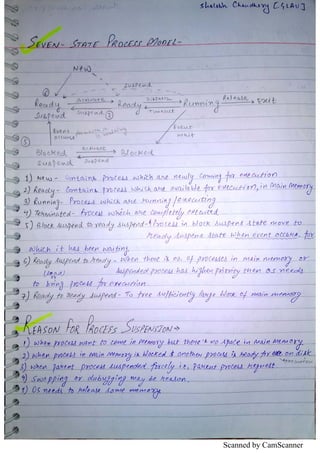 Shalabh Chaudhary [GLAU]
SEVEN- STATE PROCESS MODEL-
New
Suspend
Ready Activate Ready Dispatch Running Release Exit
Suspend Suspend Timeout
Event occurs
Event wait
Blocked Activate Blocked
Suspend Suspend
1) New - Contains Process which are newly coming for execution
2) Ready - Contains process which are available for execution, in Main Memory
3) Running - Process which are running/executing
4) Terminated - Process which are completely executed
5) Block suspend to ready suspend - Process in block suspend state move to
ready suspend state when event occurs, for
which it has been waiting.
6) Ready Suspend to Ready - When there is no. of processes in main memory or
suspended process has higher priority then OS needs
to bring process for execution
7) Ready to Ready suspend - To free sufficiently large block of main memory
REASON FOR PROCESS SUSPENSION →
1) When process want to come in memory but there's no space in Main Memory
2) When process in main memory is blocked & another process is ready for exe on disk
3) When parent process suspended forcely i.e. Parent process request.
4) Swapping or debugging may be reason.
5) OS needs to release some memory
Scanned by CamScanner